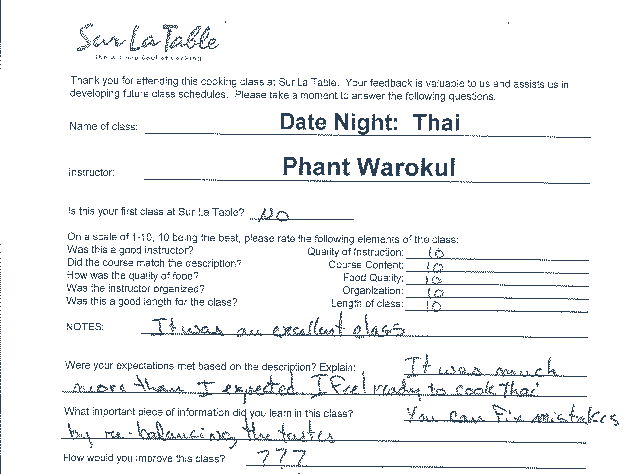 Sur La Table
Thank you for attending this cooking class at Sur La Table. Your feedback is valuable to us and assists us in
developing future class schedules. Please take a moment to answer the following questions.
Name of class: Date Night: Thai
Instructor: Phant Warokul
Is this your first class at Sur La Table? NO
On a scale of 1-10, 10 being the best, please rate the following elements of the class:
Was this a good instructor? Quality of Instruction: 10
Did the course match the description? Course Content: 10
How was the quality of food? Food Quality: 10
Was the instructor organized? Organization: 10
Was this a good length for the class? Length of class: 10
NOTES: It was an excellent class
Were your expectations met based on the description? Explain: It was much
more than I expected I feel ready to cook Thai
What important piece of information did you learn in this class? You can fix mistakes
by re-balancing the tastes
How would you improve this class? ???